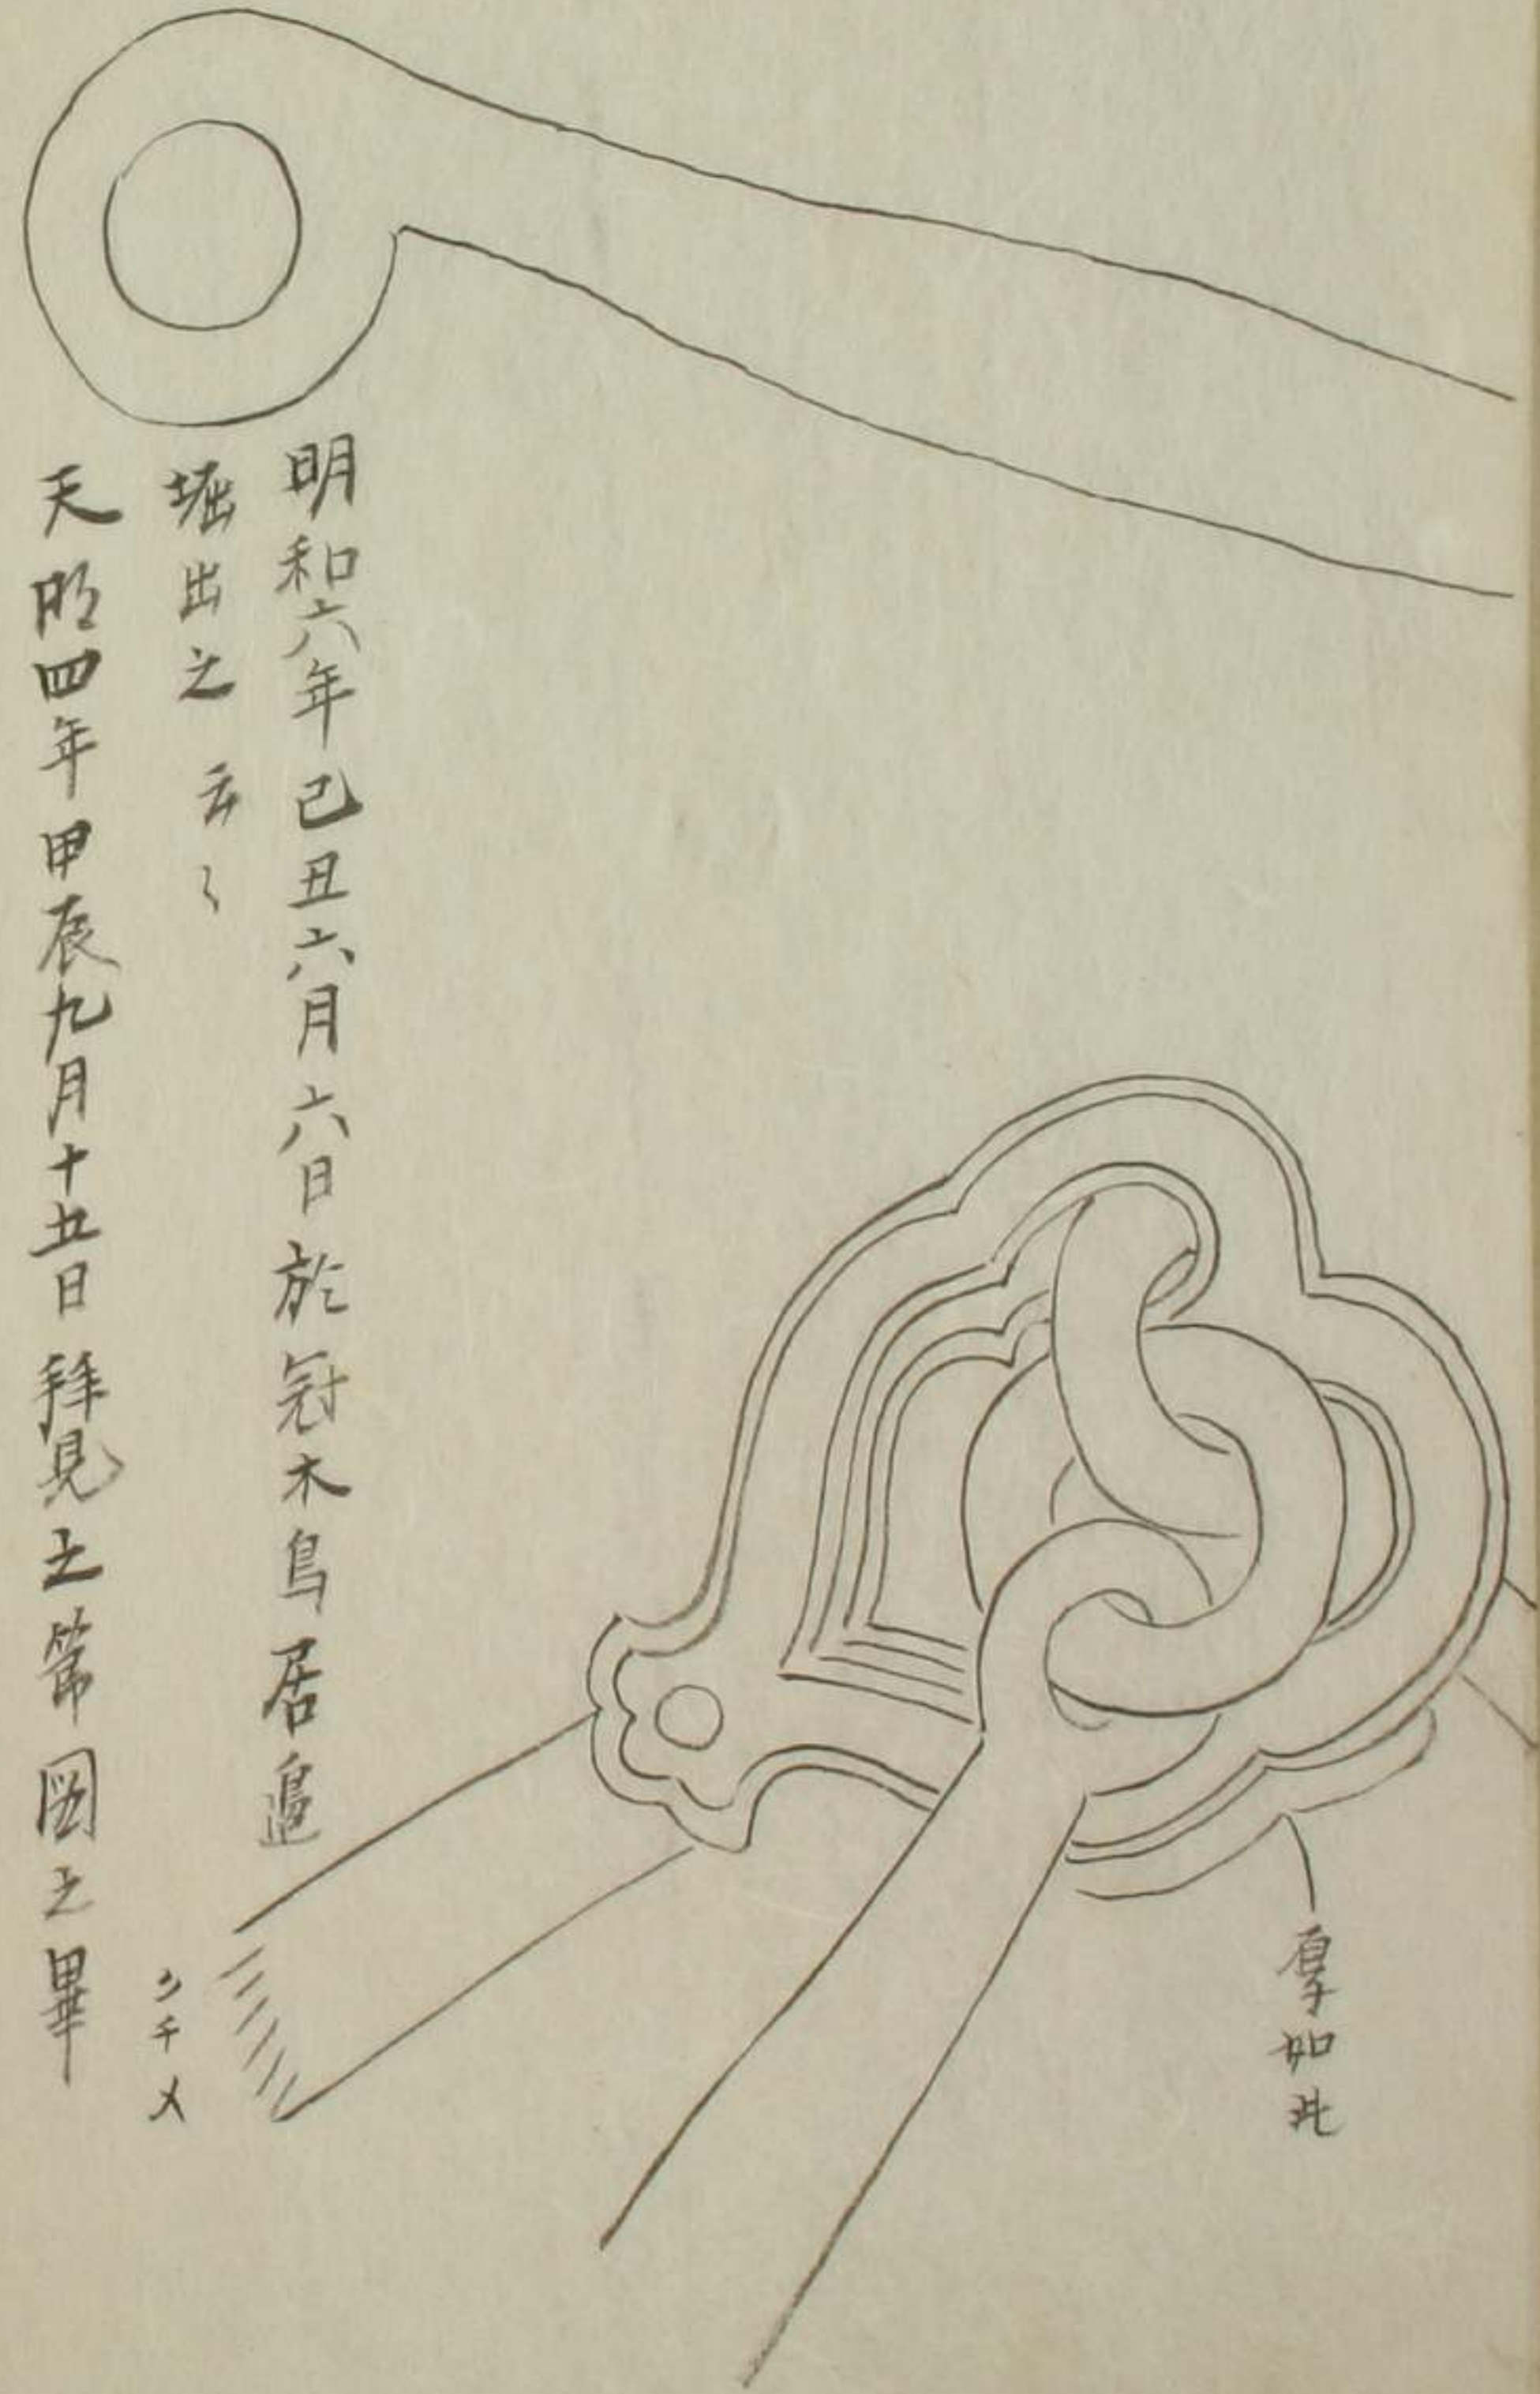 厚如此
明和六年己丑六月六日於冠木鳥居邉
堀出之云〻
クチメ
天明四年甲辰九月十五日拝見之節図之畢